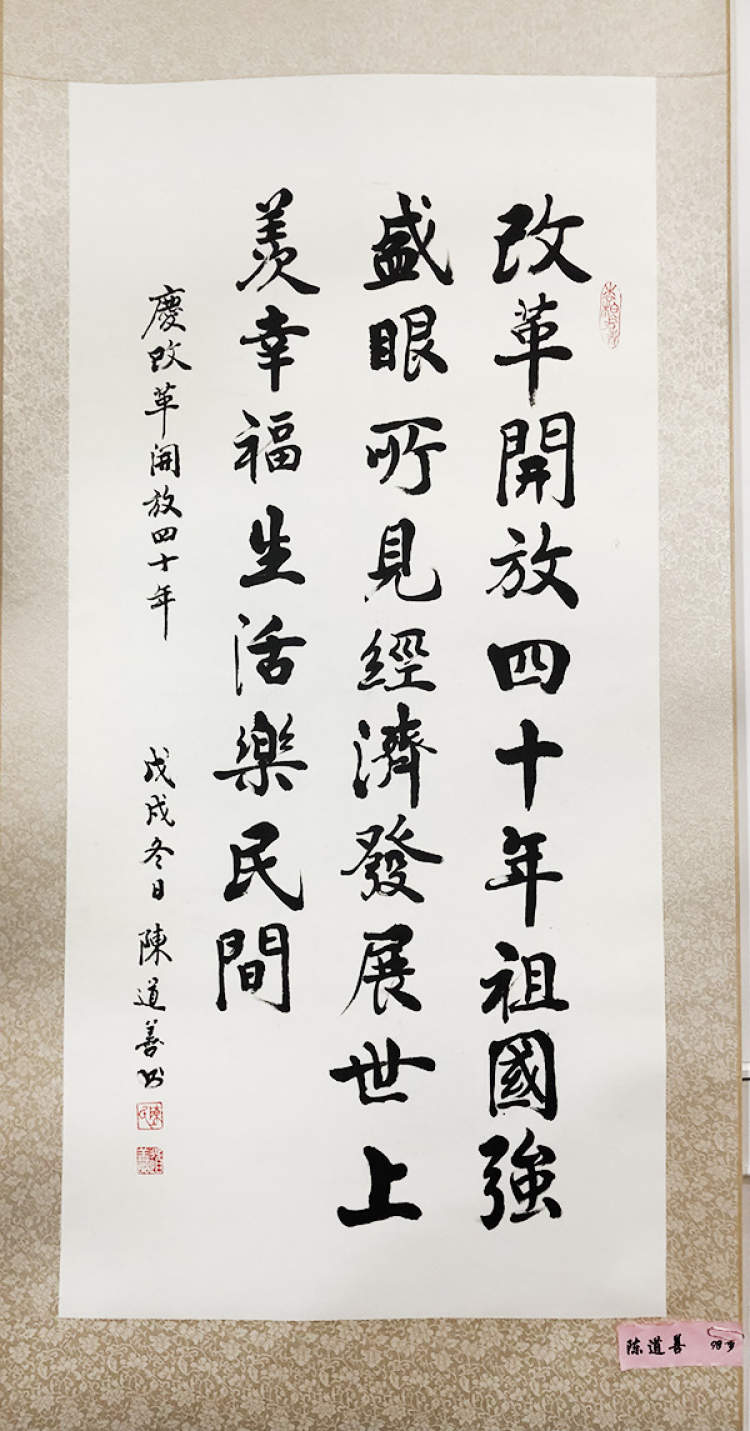 改革開放四十年祖國強
盛眼所見經濟發展世上
羨幸福生活樂民間
慶改革開放四十年
戊戌冬日 陳道善书
陈道善 98岁